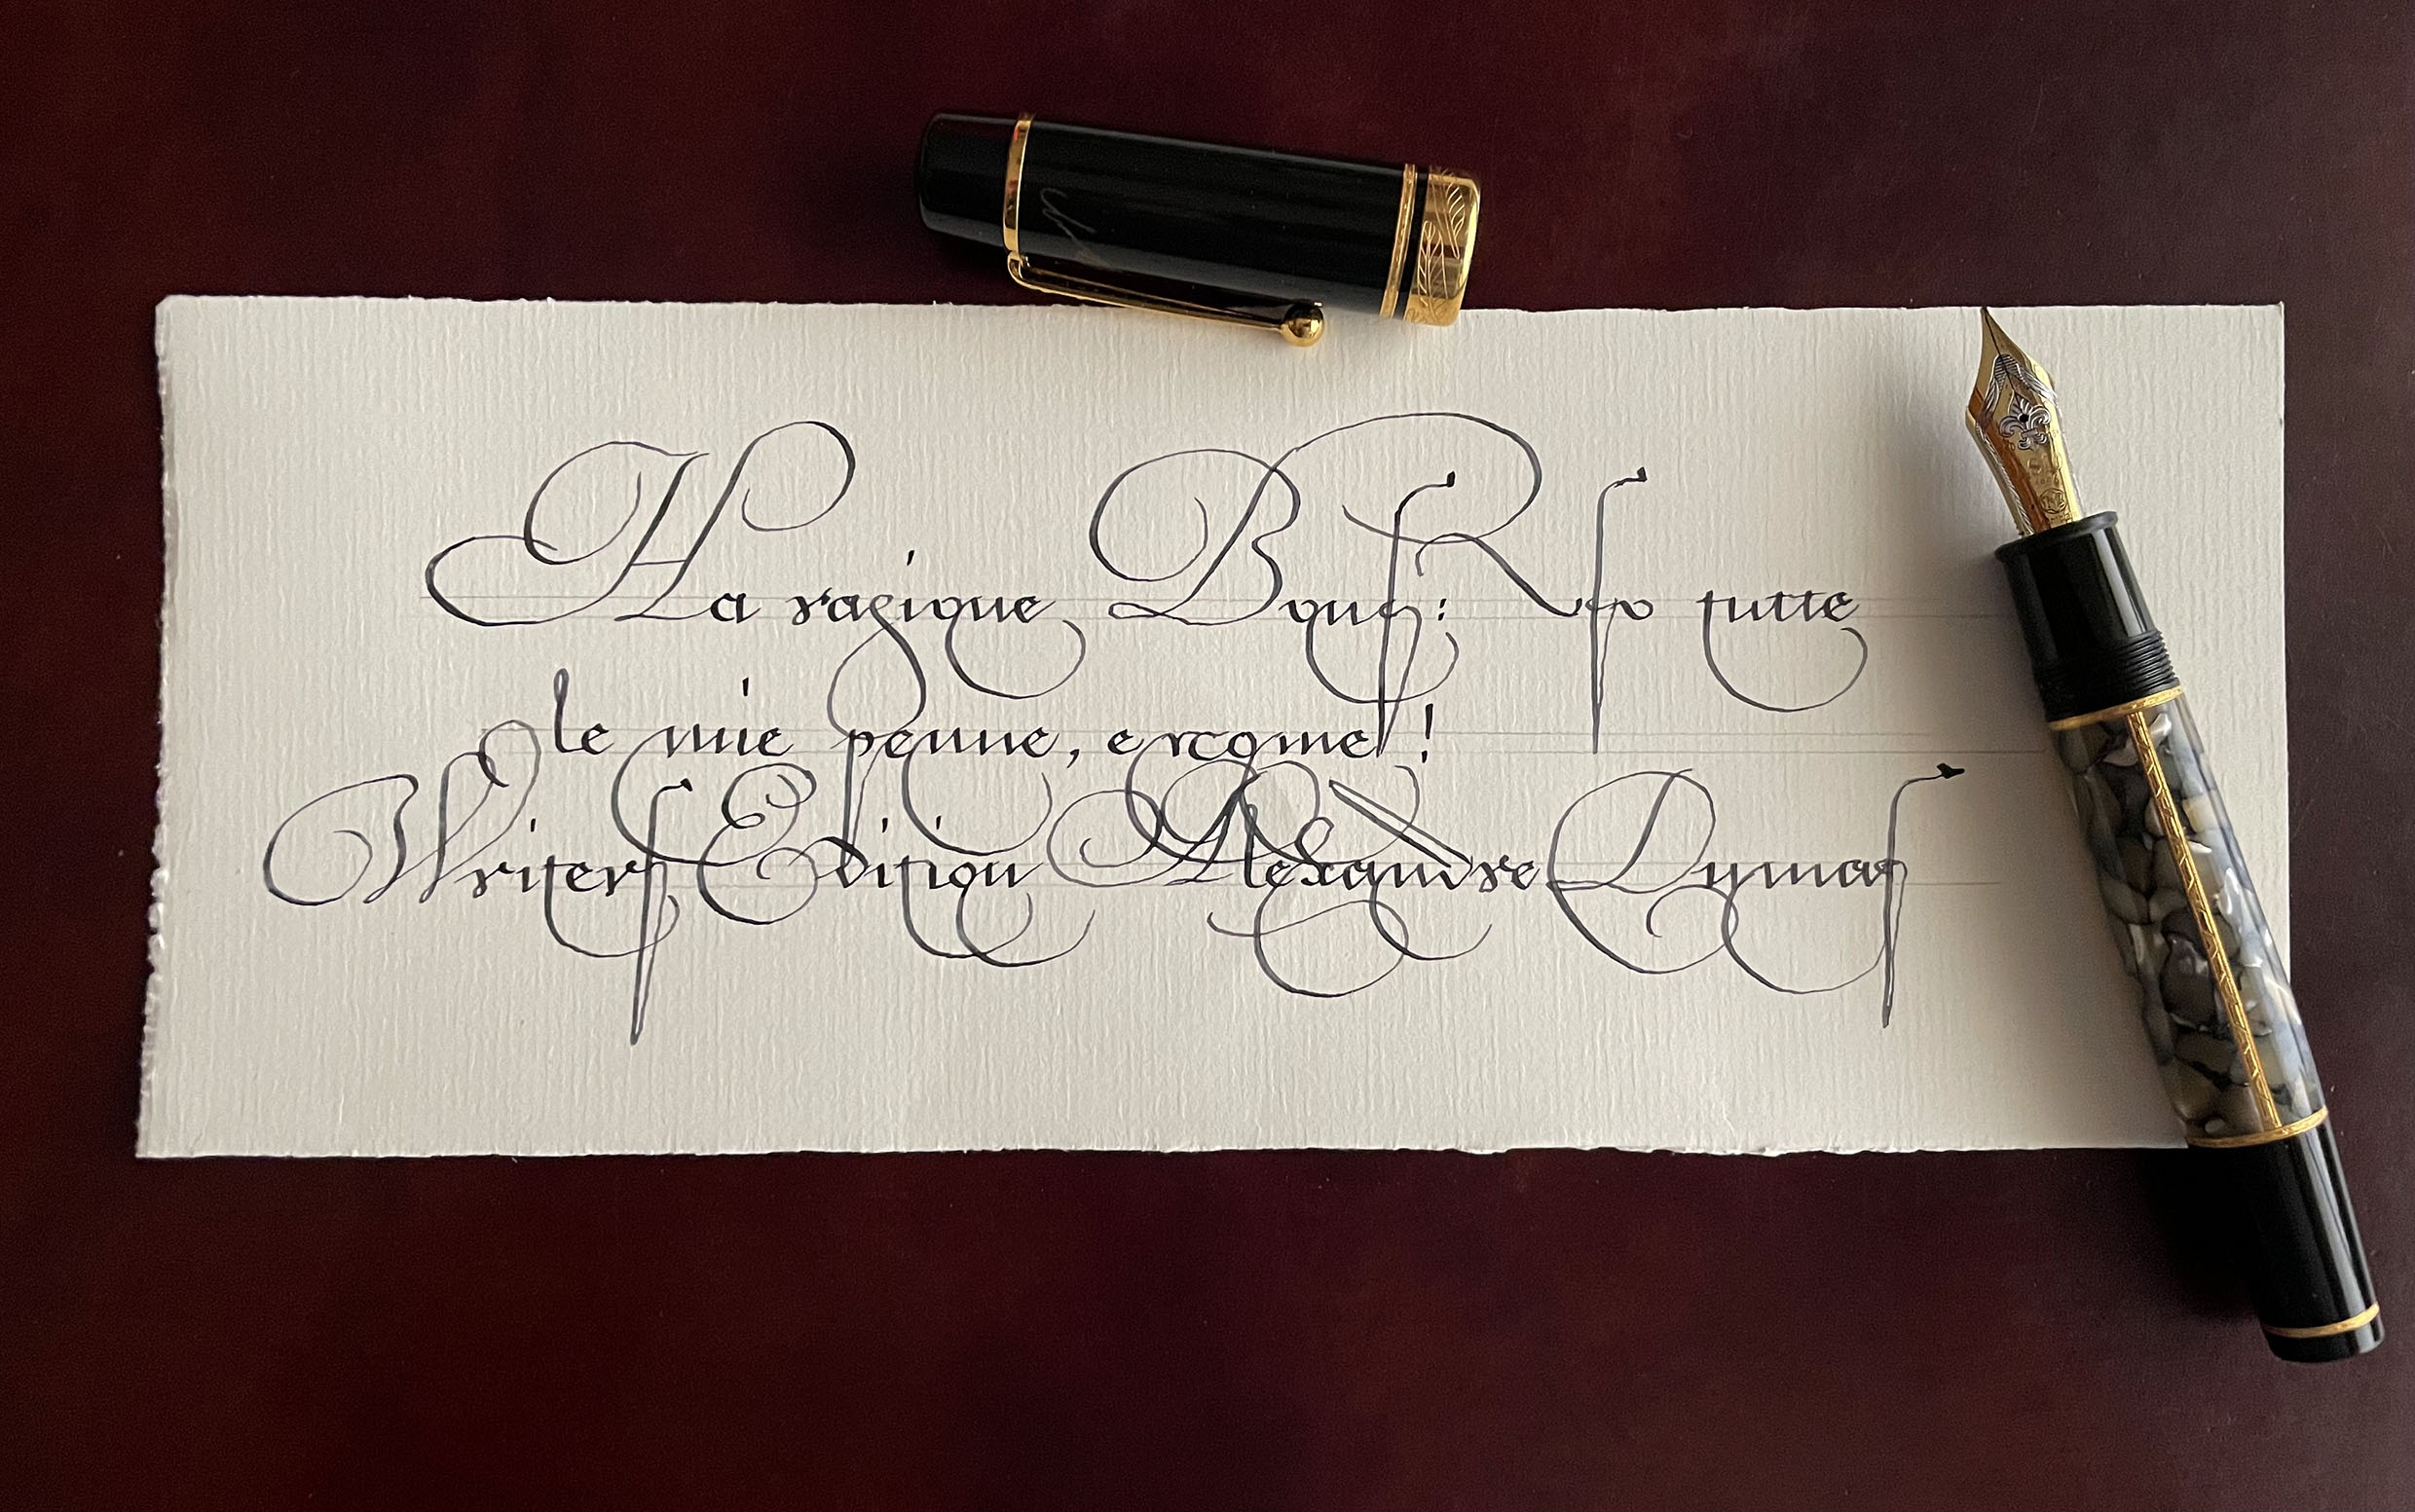 Ha ragione Bons: Uso tutte
le mie penne, eccome!
Writers Edition Alexandre Dumas